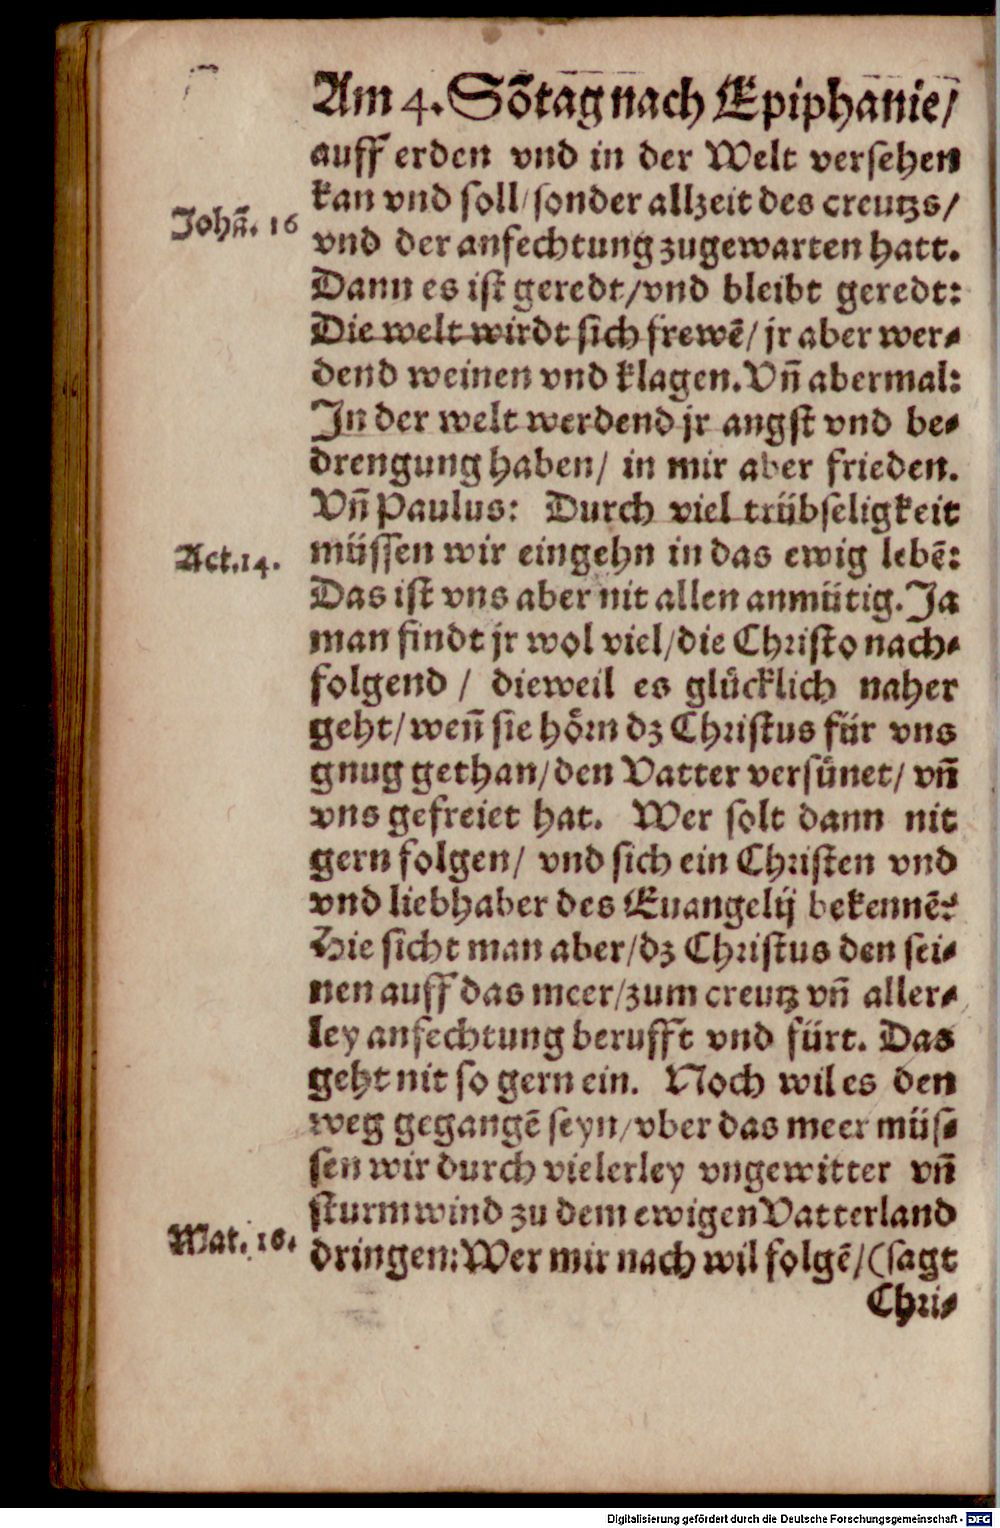 Am 4. Sõtag nach Epiphanie/
auff erden vnd in der Welt versehen
kan vnd soll/sonder allzeit des creutzs/
Johã. 16
vnd der anfechtung zugewarten hatt.
Dann es ist geredt/vnd bleibt geredt:
Die welt wirdt sich frewẽ/ jr aber wer-
dend weinen vnd klagen. Vñ abermal:
In der welt werdend jr angst vnd be-
drengung haben/ in mir aber frieden.
Vñ Paulus: Durch viel trübseligkeit
Act.14.
müssen wir eingehn in das ewig lebẽ:
Das ist vns aber nit allen anmütig. Ja
man findt jr wol viel/die Christo nach-
folgend / dieweil es glücklich naher
geht/weñ sie hörn dz Christus für vns
gnug gethan/den Vatter versünet/ vñ
vns gefreiet hat. Wer solt dann nit
gern folgen/ vnd sich ein Christen vnd
vnd liebhaber des Euangelij bekennẽ?
Hie sicht man aber/dz Christus den sei-
nen auff das meer/zum creutz vñ aller-
ley anfechtung berufft vnd fürt. Das
geht nit so gern ein. Noch wil es den
weg gegangẽ seyn/vber das meer müs-
sen wir durch vielerley vngewitter vñ
sturmwind zu dem ewigen Vatterland
Mat. 16.
dringen: Wer mir nach wil folgẽ/(sagt
Chri-
Digitalisierung gefördert durch die Deutsche Forschungsgemeinschaft - DFG